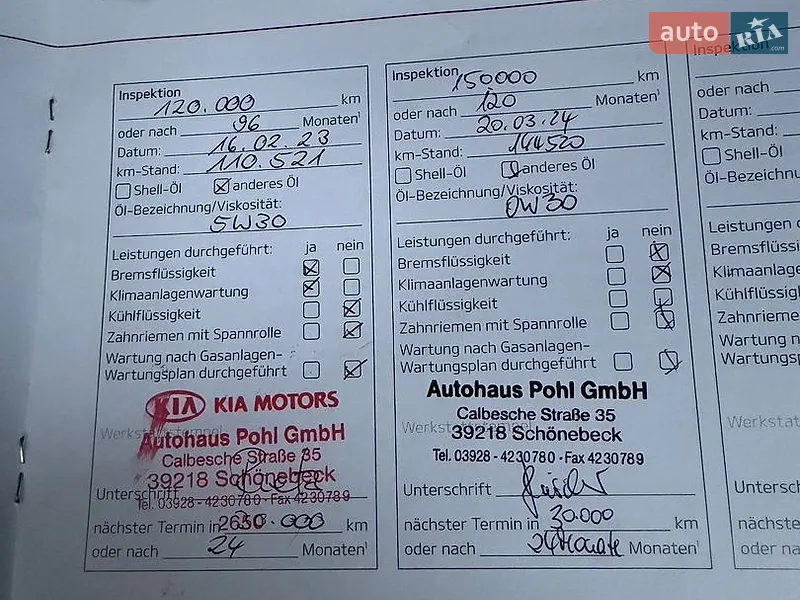 auto RIA.com
Inspektion
120.000 km
oder nach 96 Monaten¹
Datum: 16.02.23
km-Stand: 110.521
Shell-Öl anderes Öl
Öl-Bezeichnung/Viskosität:
5W30
Leistungen durchgeführt: ja nein
Bremsflüssigkeit
Klimaanlagenwartung
Kühlflüssigkeit
Zahnriemen mit Spannrolle
Wartung nach Gasanlagen-
Wartungsplan durchgeführt
KIA KIA MOTORS
Werkstattstempel
Autohaus Pohl GmbH
Calbesche Straße 35
39218 Schönebeck
Unterschrift
Tel. 03928 - 4230780 - Fax 4230789
nächster Termin in 30.000 km
oder nach 24 Monaten¹
Inspektion
150000 km
oder nach 120 Monaten¹
Datum: 20.03.24
km-Stand: 144520
Shell-Öl anderes Öl
Öl-Bezeichnung/Viskosität:
0W30
Leistungen durchgeführt: ja nein
Bremsflüssigkeit
Klimaanlagenwartung
Kühlflüssigkeit
Zahnriemen mit Spannrolle
Wartung nach Gasanlagen-
Wartungsplan durchgeführt
Autohaus Pohl GmbH
Calbesche Straße 35
Werkstattstempel
39218 Schönebeck
Tel. 03928 - 4230780 - Fax 4230789
Unterschrift
nächster Termin in 30.000 km
oder nach 24 Monate Monaten¹
Inspektion
oder nach
Datum:
km-Stand:
Shell-Öl
Öl-Bezeichnung
Leistungen
Bremsflüssi
Klimaanlagen
Kühlflüssig
Zahnriemen
Wartung na
Wartungspl
Werkst
Unterschrif
nächster
oder nach